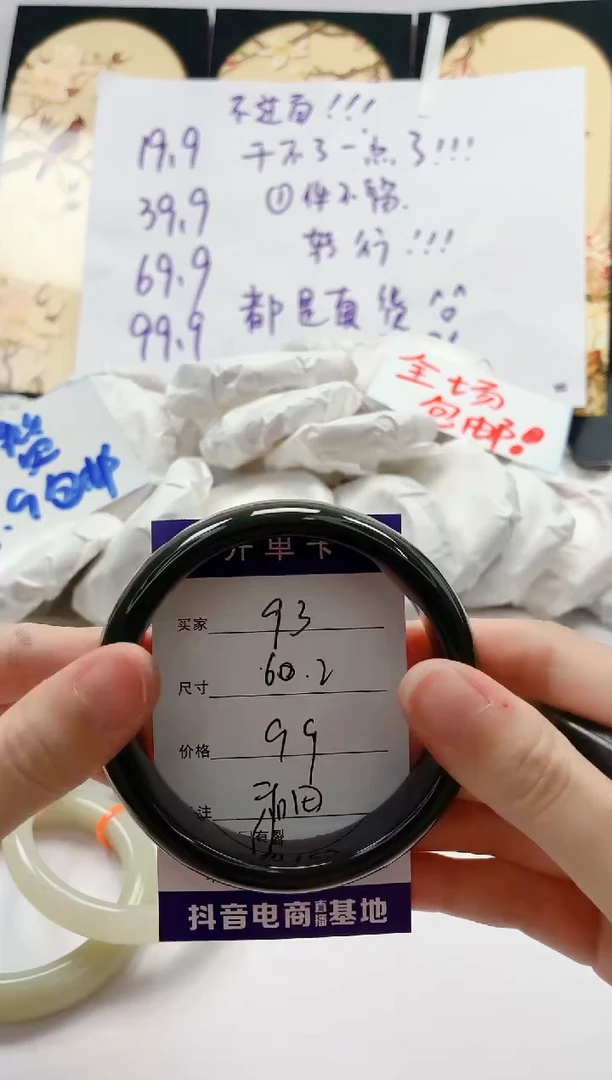 不过年!!!
19.9 干不了一点了!!!
39.9 ①件不躺.
69.9 转行!!!
99.9 都是真货
全场
包邮!
.9包邮
开单卡
买家 93
尺寸 60.2
价格 99
注 和田
有裂
抖音电商直播基地